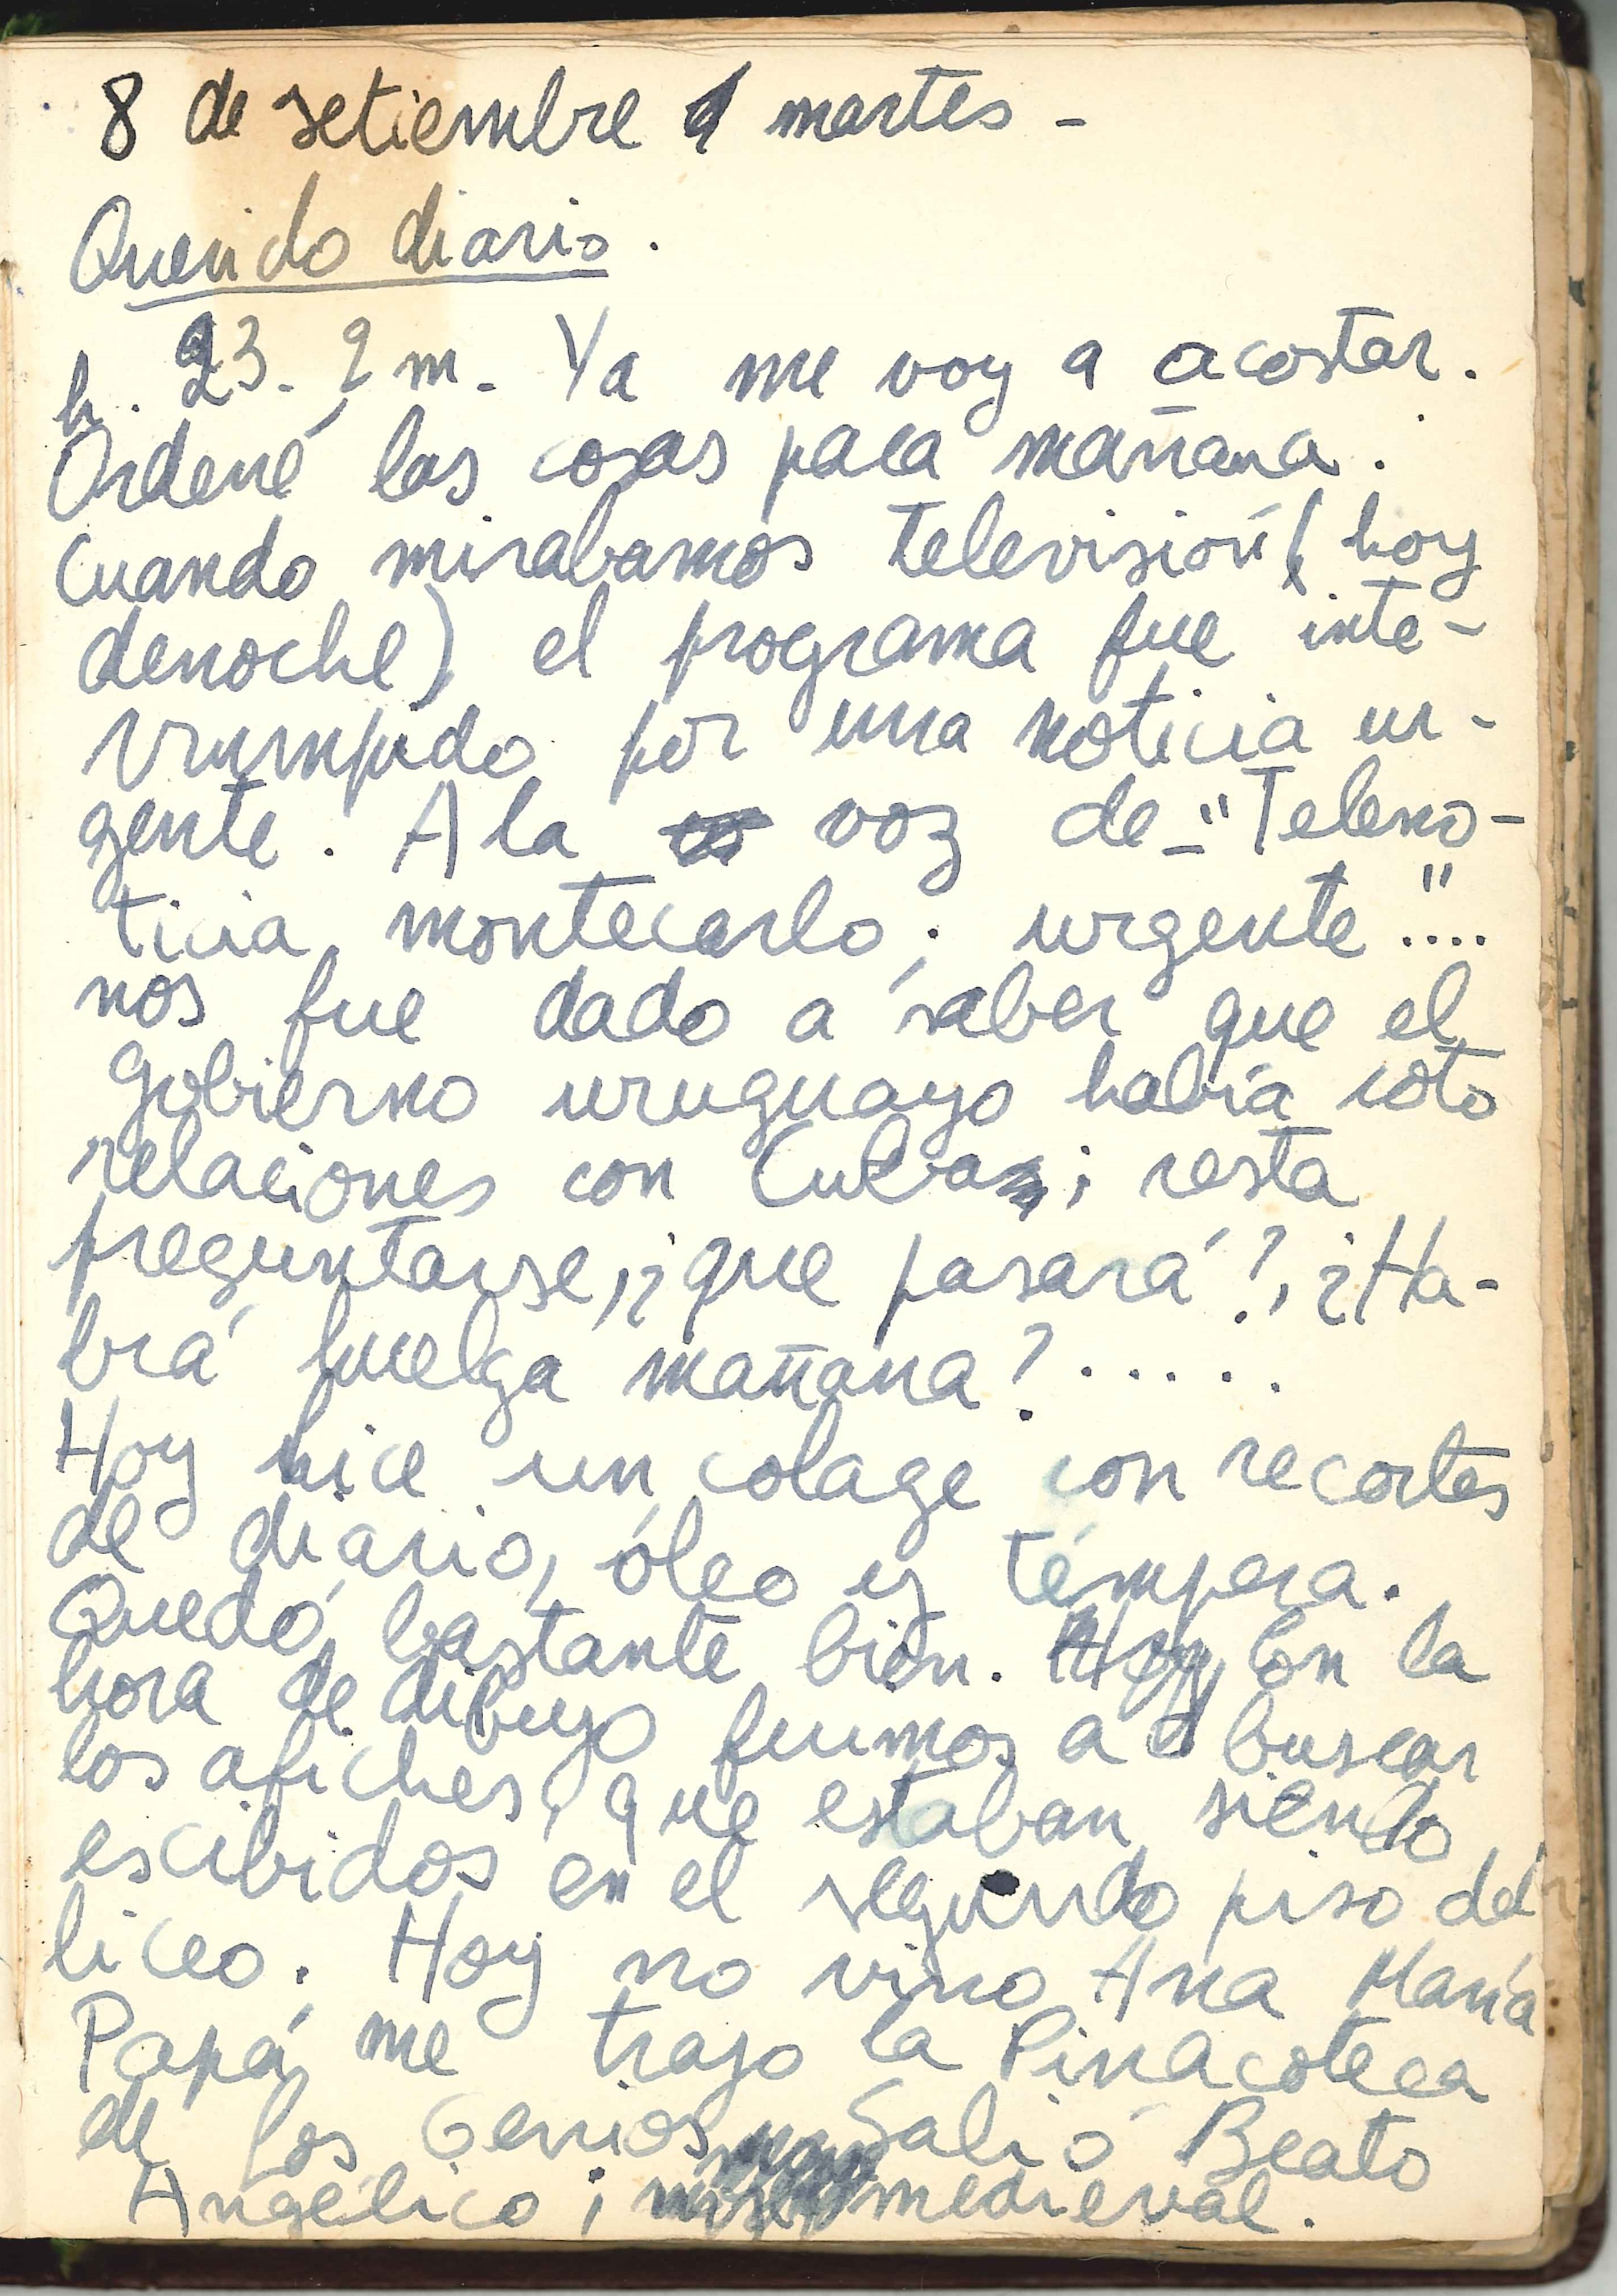 8 de setiembre martes -
Querido diario.
h. 23. 2 m. Ya me voy a acostar.
Ordené las cosas para mañana.
Cuando mirabamos televisión (hoy
denoche) el programa fue inte-
rrumpido por una noticia ur-
gente. A la voz de - "Teleno-
ticia montecarlo; urgente"....
nos fue dado a saber que el
Gobierno uruguayo había roto
relaciones con Cuba; resta
preguntarse, ¿que pasará?, ¿Ha-
brá huelga mañana? ......
Hoy hice un colage con recortes
de diario, óleo y témpera.
Quedó bastante bien. Hoy, en la
hora de dibujo fuimos a buscar
los afiches, que estaban siendo
escibidos en el segundo piso del
liceo. Hoy no vino Ana María
Papá me trajo la Pinacoteca
de los Genios Salió Beato
Angélico; medieval.